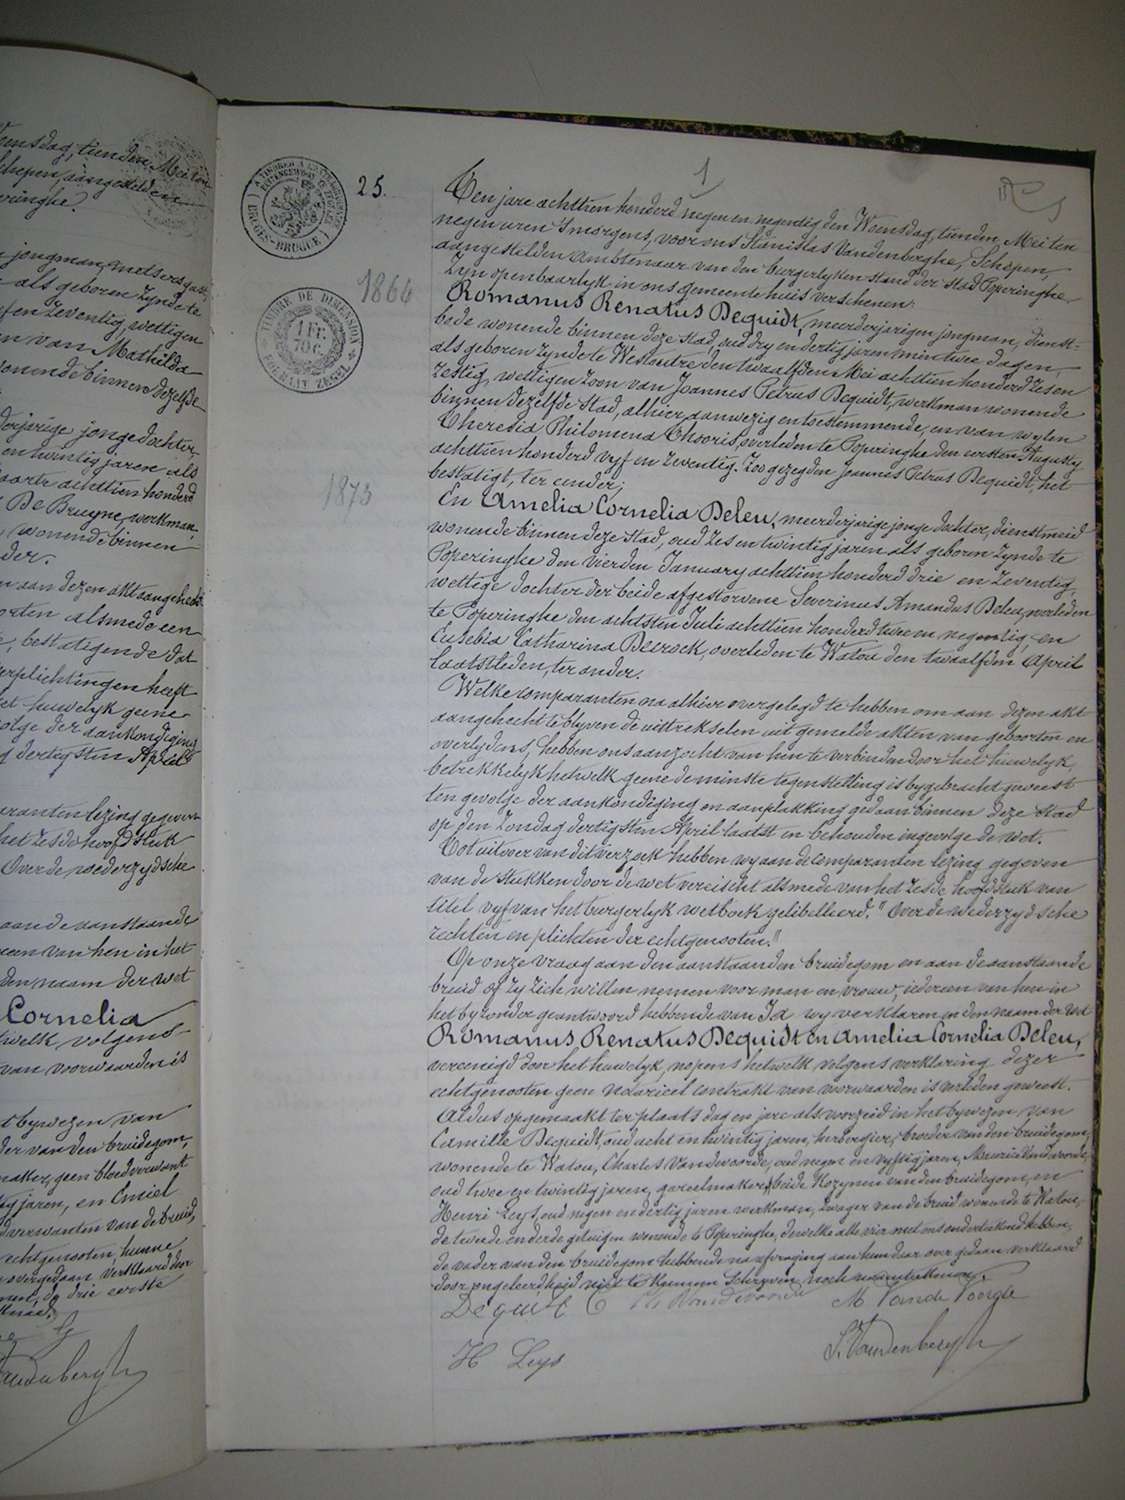 Woensdag, tienden Mei ten
Schepen, aangestelden
Poperinghe.
jongman, metsersgast,
als geboren zynde te
en zeventig, wettigen
van Mathilda
wonende binnen dezelfde
derjarige jonge dochter,
en twintig jaren als
achttien honderd
De Bruyne, werkman,
wonende binnen
der.
aan dezen akt aangehecht
alsmede een
bestatigende dat
verplichtingen heeft
huwelyk geene
der aankondiging
dertigsten April
lezing gegeven
het zesde hoofdstuk
Over de wederzydsche
aan de aanstaande
een van hen in het
den naam der wet
Cornelia
hetwelk volgens
van voorwaarden is
bywezen van
der van den bruidegom,
maker, geen bloedverwant
jaren, en Emiel
verwanten van de bruid,
echtgenooten, hunne
overgedaan, verklaard door
de drie eerste
Vandenbergh
TIMBRE DE DIMENSION
1 FR.
70 C.
FORMAAT ZEGEL
BRUGES-BRUGGE
25.
1
1866
1873
Ten jare achttien honderd negen en negentig den Woensdag, tienden Mei ten
negen uren 's morgens, voor ons Stanislas Vandenberghe, Schepen,
aangestelden Ambtenaar van den burgerlyken stand der stad Poperinghe,
zyn openbaarlyk in ons gemeentehuis verschenen:
Romanus Renatus Dequidt, meerderjarigen jongman, dienst=
bode wonende binnen deze stad, oud dry en dertig jaren min twee dagen,
als geboren zynde te Westoutre den twaalfden Mei achttien honderd zes en
zestig, wettigen zoon van Joannes Petrus Dequidt, werkman wonende
binnen dezelfde stad, alhier aanwezig en toestemmende, en van wylen
Theresia Philomena Thooris, overleden te Poperinghe den eersten Augusty
achttien honderd vyf en zeventig. Zoo gezegden Joannes Petrus Dequidt, het
bestatigt, ter eender;
En Amelia Cornelia Deleu, meerderjarige jonge dochter, dienstmeid
wonende binnen deze stad, oud zes en twintig jaren als geboren zynde te
Poperinghe den vierden January achttien honderd drie en zeventig,
wettige dochter der beide afgestorvene Severinus Amandus Deleu, overleden
te Poperinghe den achtsten Juli achttien honderd twee en negentig, en
Eusebia Catharina Deerock, overleden te Watou den twaalfden April
laatstleden, ter ander.
Welke comparanten na alhier overgelegd te hebben om aan dezen akt
aangehecht te blyven de uittrekselen uit gemelde akten van geboorten en
overlydens, hebben ons aanzocht van hen te verbinden door het huwelyk,
betrekkelyk hetwelk geene de minste tegenstelling is bygebracht geweest
ten gevolge der aankondiging en aanplakking gedaan binnen deze stad
op den Zondag dertigsten April laatst en behouden ingevolge de wet.
Tot uitvoer van dit verzoek hebben wy aan de comparanten lezing gegeven
van de stukken door de wet vereischt alsmede van het zesde hoofdstuk van
titel vyf van het burgerlyk wetboek gelibelleerd: "Over de wederzydsche
rechten en plichten der echtgenooten."
Op onze vraag aan den aanstaanden bruidegom en aan de aanstaande
bruid of zy zich willen nemen voor man en vrouw, iedereen van hen in
het byzonder geantwoord hebbende van Ja wy verklaren in den naam der Wet
Romanus, Renatus Dequidt en Amelia Cornelia Deleu,
vereenigd door het huwelyk, nopens hetwelk volgens verklaring dezer
echtgenooten geen notarieel contrakt van voorwaarden is verleden geweest.
Aldus opgemaakt ter plaats dag en jare als voorzeid in het bywezen van
Camille Dequidt, oud acht en twintig jaren, herbergier, broeder van den bruidegom,
wonende te Watou, Charles Vandevoorde, oud negen en vyftig jaren, Maurice Vandevoorde,
oud twee en twintig jaren, gareelmakers, beide kozynen van den bruidegom, en
Henri Leys, oud negen en dertig jaren werkman, zwager van de bruid wonende te Watou,
de tweede en derde getuigen wonende te Poperinghe, dewelke alle vier met ons onderteekend hebben,
de vader van den bruidegom hebbende na afvraging aan hem daar over gedaan, verklaard
door ongeleerdheid niet te kunnen schryven noch naamteekenen.
Dequidt C Ch Vandevoorde M Vande Voorde
H Leys S. Vandenbergh